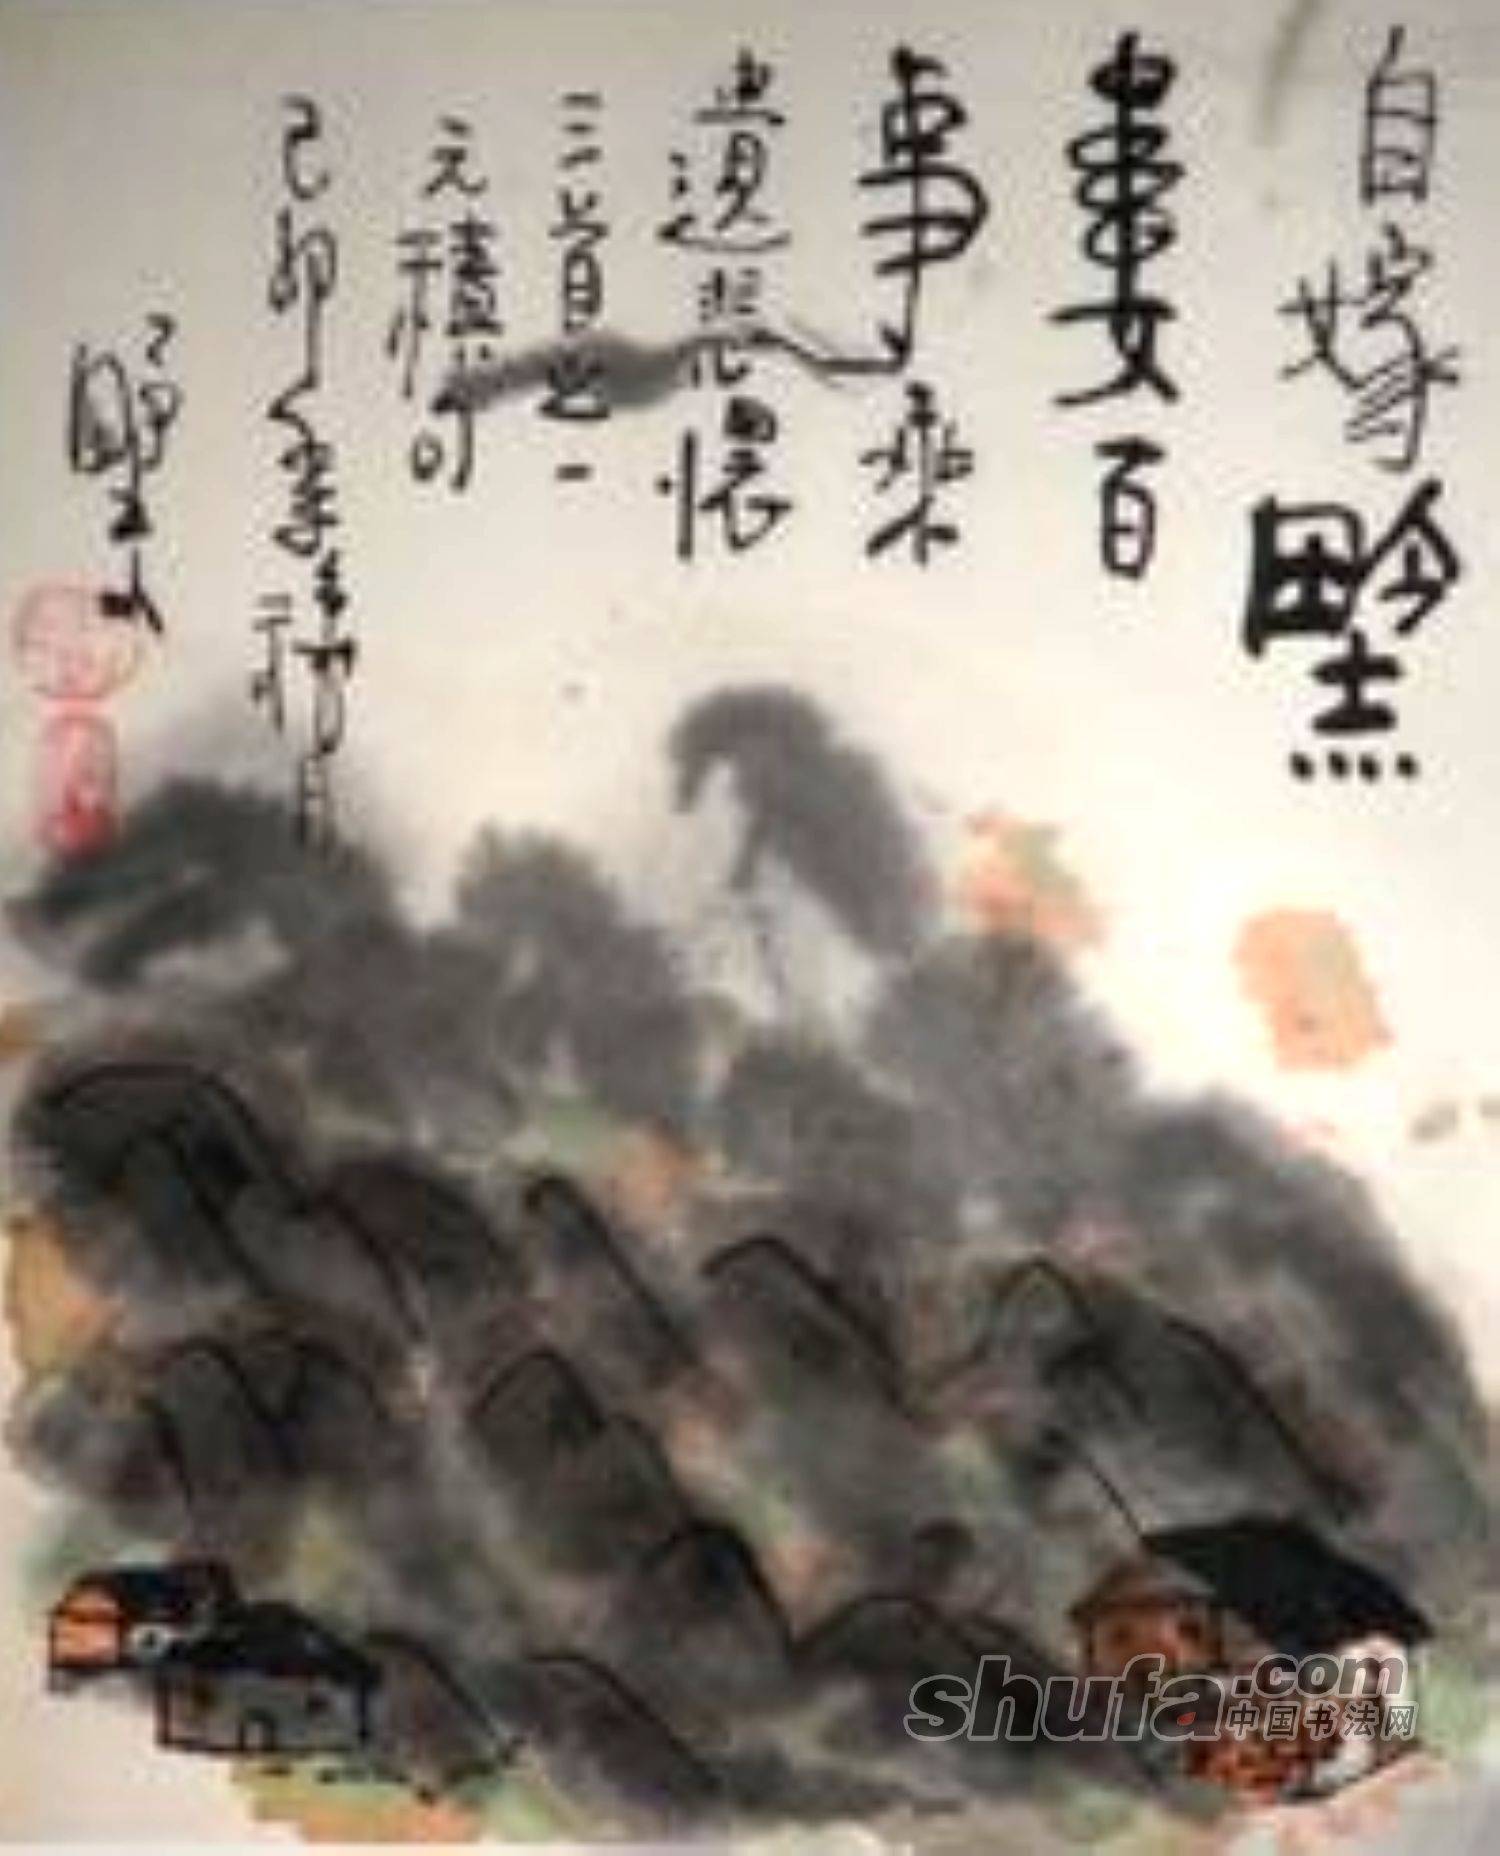 自嫁黔
婁百
事乖
遣悲懷
三首之一
元稹句
己卯
shufa.com
中国书法网